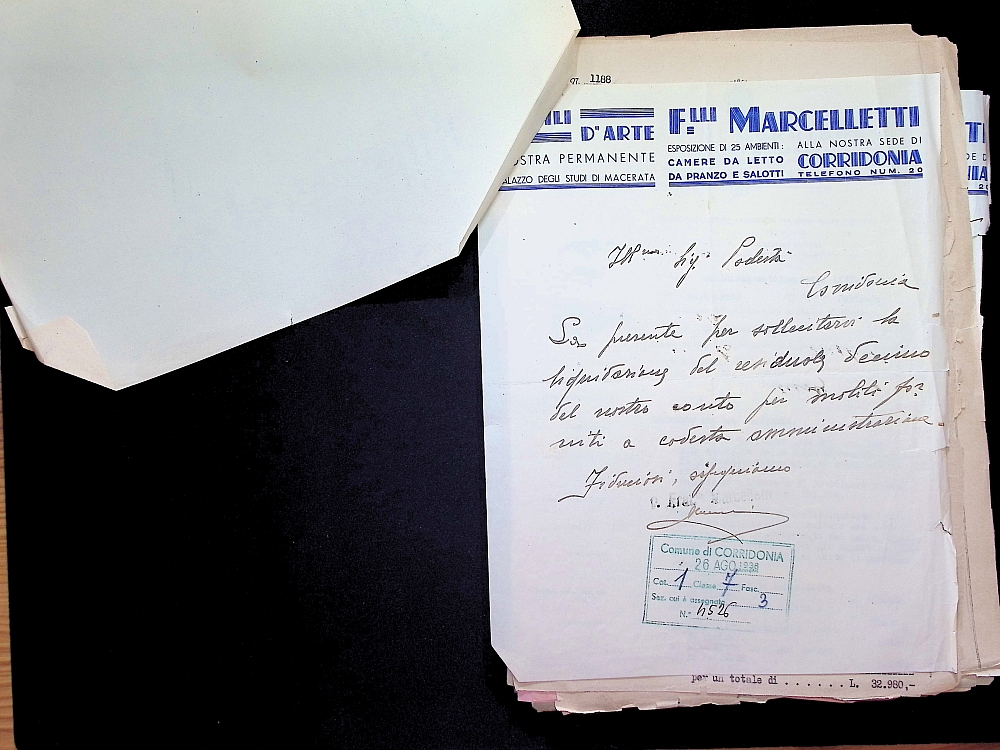 1188
ILI
D'ARTE
OSTRA PERMANENTE
ALAZZO DEGLI STUDI DI MACERATA
F.LLI MARCELLETTI
ESPOSIZIONE DI 25 AMBIENTI:
CAMERE DA LETTO
DA PRANZO E SALOTTI
ALLA NOSTRA SEDE DI
CORRIDONIA
TELEFONO NUM. 20
Ill.mo Sig. Podestà
Corridonia
La presente per sollecitarvi la
liquidazione del residuale decimo
del nostro conto per mobili for=
niti a codesta amministrazione.
Fiduciosi, ossequiamo
Comune di CORRIDONIA
26 AGO 1938
Cat. 1 Classe 7 Fasc.
Sez. cui è assegnata 3
N.° 4526
per un totale di . . . . . . L. 32.980,-